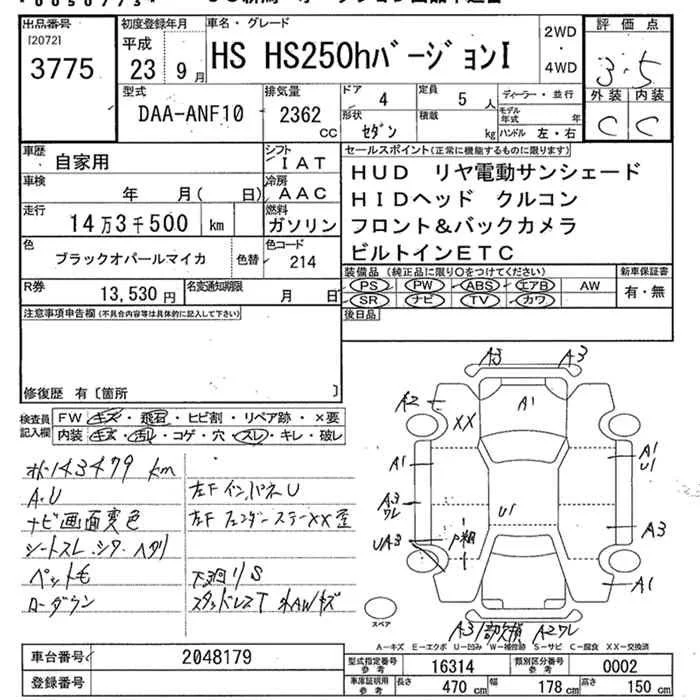 出品番号
[2072]
3775
初度登録年月
平成
23 9月
車名・グレード
HS HS250hバージョンI
2WD
・
4WD
評価点
3.5
外装 内装
C C
型式
DAA-ANF10
排気量
2362
cc
ドア 4
定員 5 人
形状 セダン
積載 kg
ディーラー・並行
モデル年式 年
ハンドル 左・右
車歴 自家用
シフト IAT
車検 年 月( 日)
冷房 AAC
走行 14万3千500 km
燃料 ガソリン
色 ブラックオパールマイカ
色替
色コード 214
R券 13,530円
名変通知期限 月 日
セールスポイント(正常に機能するものに限ります)
HUD リヤ電動サンシェード
HIDヘッド クルコン
フロント&バックカメラ
ビルトインETC
装備品(純正品に限り○をつけてください)
PS PW ABS エアB AW
SR ナビ TV カワ
新車保証書
有・無
後日品
注意事項申告欄(不具合内容等は具体的に記入して下さい)
修復歴 有〔箇所 〕
検査員記入欄
FW キズ・飛石・ヒビ割・リペア跡・×要
内装 キズ・汚れ・コゲ・穴・スレ・キレ・破レ
143479 km
A.U
ナビ画面変色
シートスレ.シワ.ヘタリ
ペット毛
ローダウン
左Fインパネ U
左F フェンダーステーXX歪
下廻り S
スタッドレスT 社外AWキズ
A3 A3
A2 XX A1
A1 A1 U1
A3 ワレ U1
UA3 A3
A1
A3 A2ワレ
スペア
A―キズ E―エクボ U―凹み W―補修跡 S―サビ C―腐食 XX―交換済
車台番号 2048179
登録番号
型式指定番号 参考 16314
類別区分番号 参考 0002
車庫証明用 参考 長さ 470cm 幅 178cm 高さ 150cm